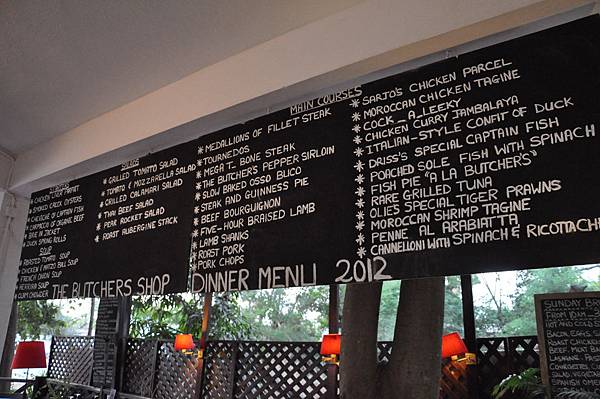 STARTERS
* CHICKEN LIVER PARFAIT
* SMOKED CREEK OYSTERS
* CEVICHE OF CAPTAIN FISH
* CARPACCIO OF ORGANIC BEEF
* BRIE IN JACKET
* DUCK SPRING ROLLS
SOUP
* ROASTED TOMATO SOUP
* CHICKEN & MATZO BALL SOUP
* FRENCH ONION SOUP
* HARIRA SOUP
* CLAM CHOWDER
SALADS
* GRILLED TOMATO SALAD
* TOMATO & MOZZARELLA SALAD
* GRILLED CALAMARI SALAD
* THAI BEEF SALAD
* PEAR ROCKET SALAD
* ROAST AUBERGINE STACK
MAIN COURSES
* MEDALLIONS OF FILLET STEAK
* TOURNEDOS
* MEGA T. BONE STEAK
* THE BUTCHERS PEPPER SIRLOIN
* SLOW BAKED OSSO BUCO
* STEAK AND GUINNESS PIE
* BEEF BOURGUIGNON
* FIVE-HOUR BRAISED LAMB
* LAMB SHANKS
* ROAST PORK
* PORK CHOPS
* SARJO'S CHICKEN PARCEL
* MOROCCAN CHICKEN TAGINE
* COCK_A_LEEKY
* CHICKEN CURRY JAMBALAYA
* ITALIAN-STYLE CONFIT OF DUCK
* DRISS'S SPECIAL CAPTAIN FISH
* POACHED SOLE FISH WITH SPINACH
* FISH PIE "A LA BUTCHERS"
* RARE GRILLED TUNA
* OLIES SPECIAL TIGER PRAWNS
* MOROCCAN SHRIMP TAGINE
* PENNE AL ARABIATTA
* CANNELLONI WITH SPINACH & RICOTTA CHEESE
THE BUTCHERS SHOP DINNER MENU 2012
SUNDAY
FROM 10AM
HOT AND COLD
BACON, EGGS
ROAST CHICKEN
BEEF, MEAT